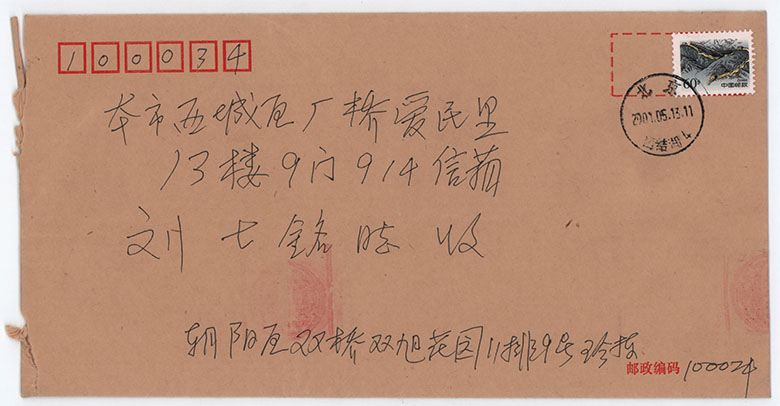 100034
60分
中国邮政
北京
2001.05.13.11
本市西城区厂桥爱民里
13楼9门914信箱
刘七铭 收
朝阳区双桥双旭花园11排9号
邮政编码 100024